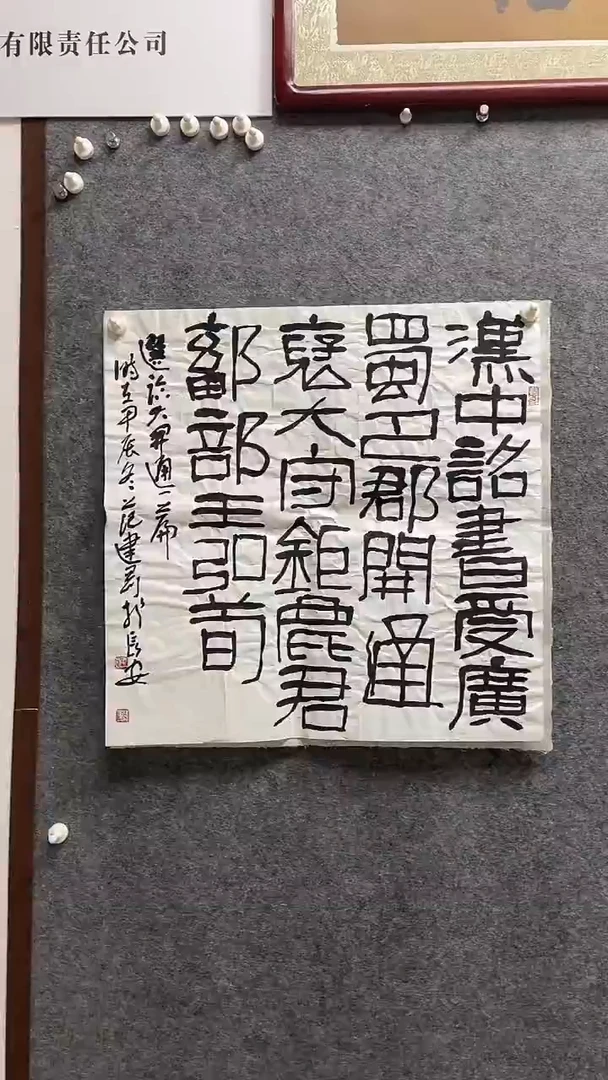 有限责任公司
漢中詔書受廣
蜀巴郡開通
褒大守鉅鹿君
鄐部王弘荀
選臨大開通一篇
時在甲辰冬范建於長安